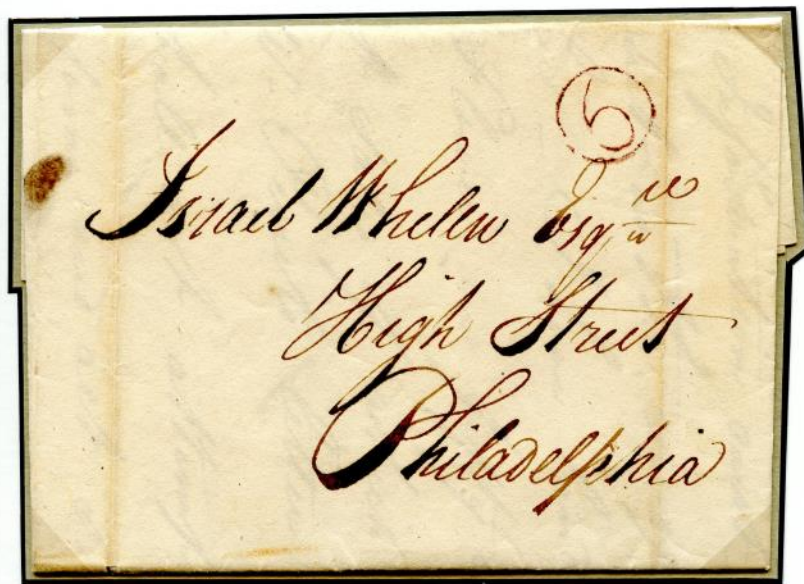 5
Israel Whelen Esqre
High Street
Philadelphia